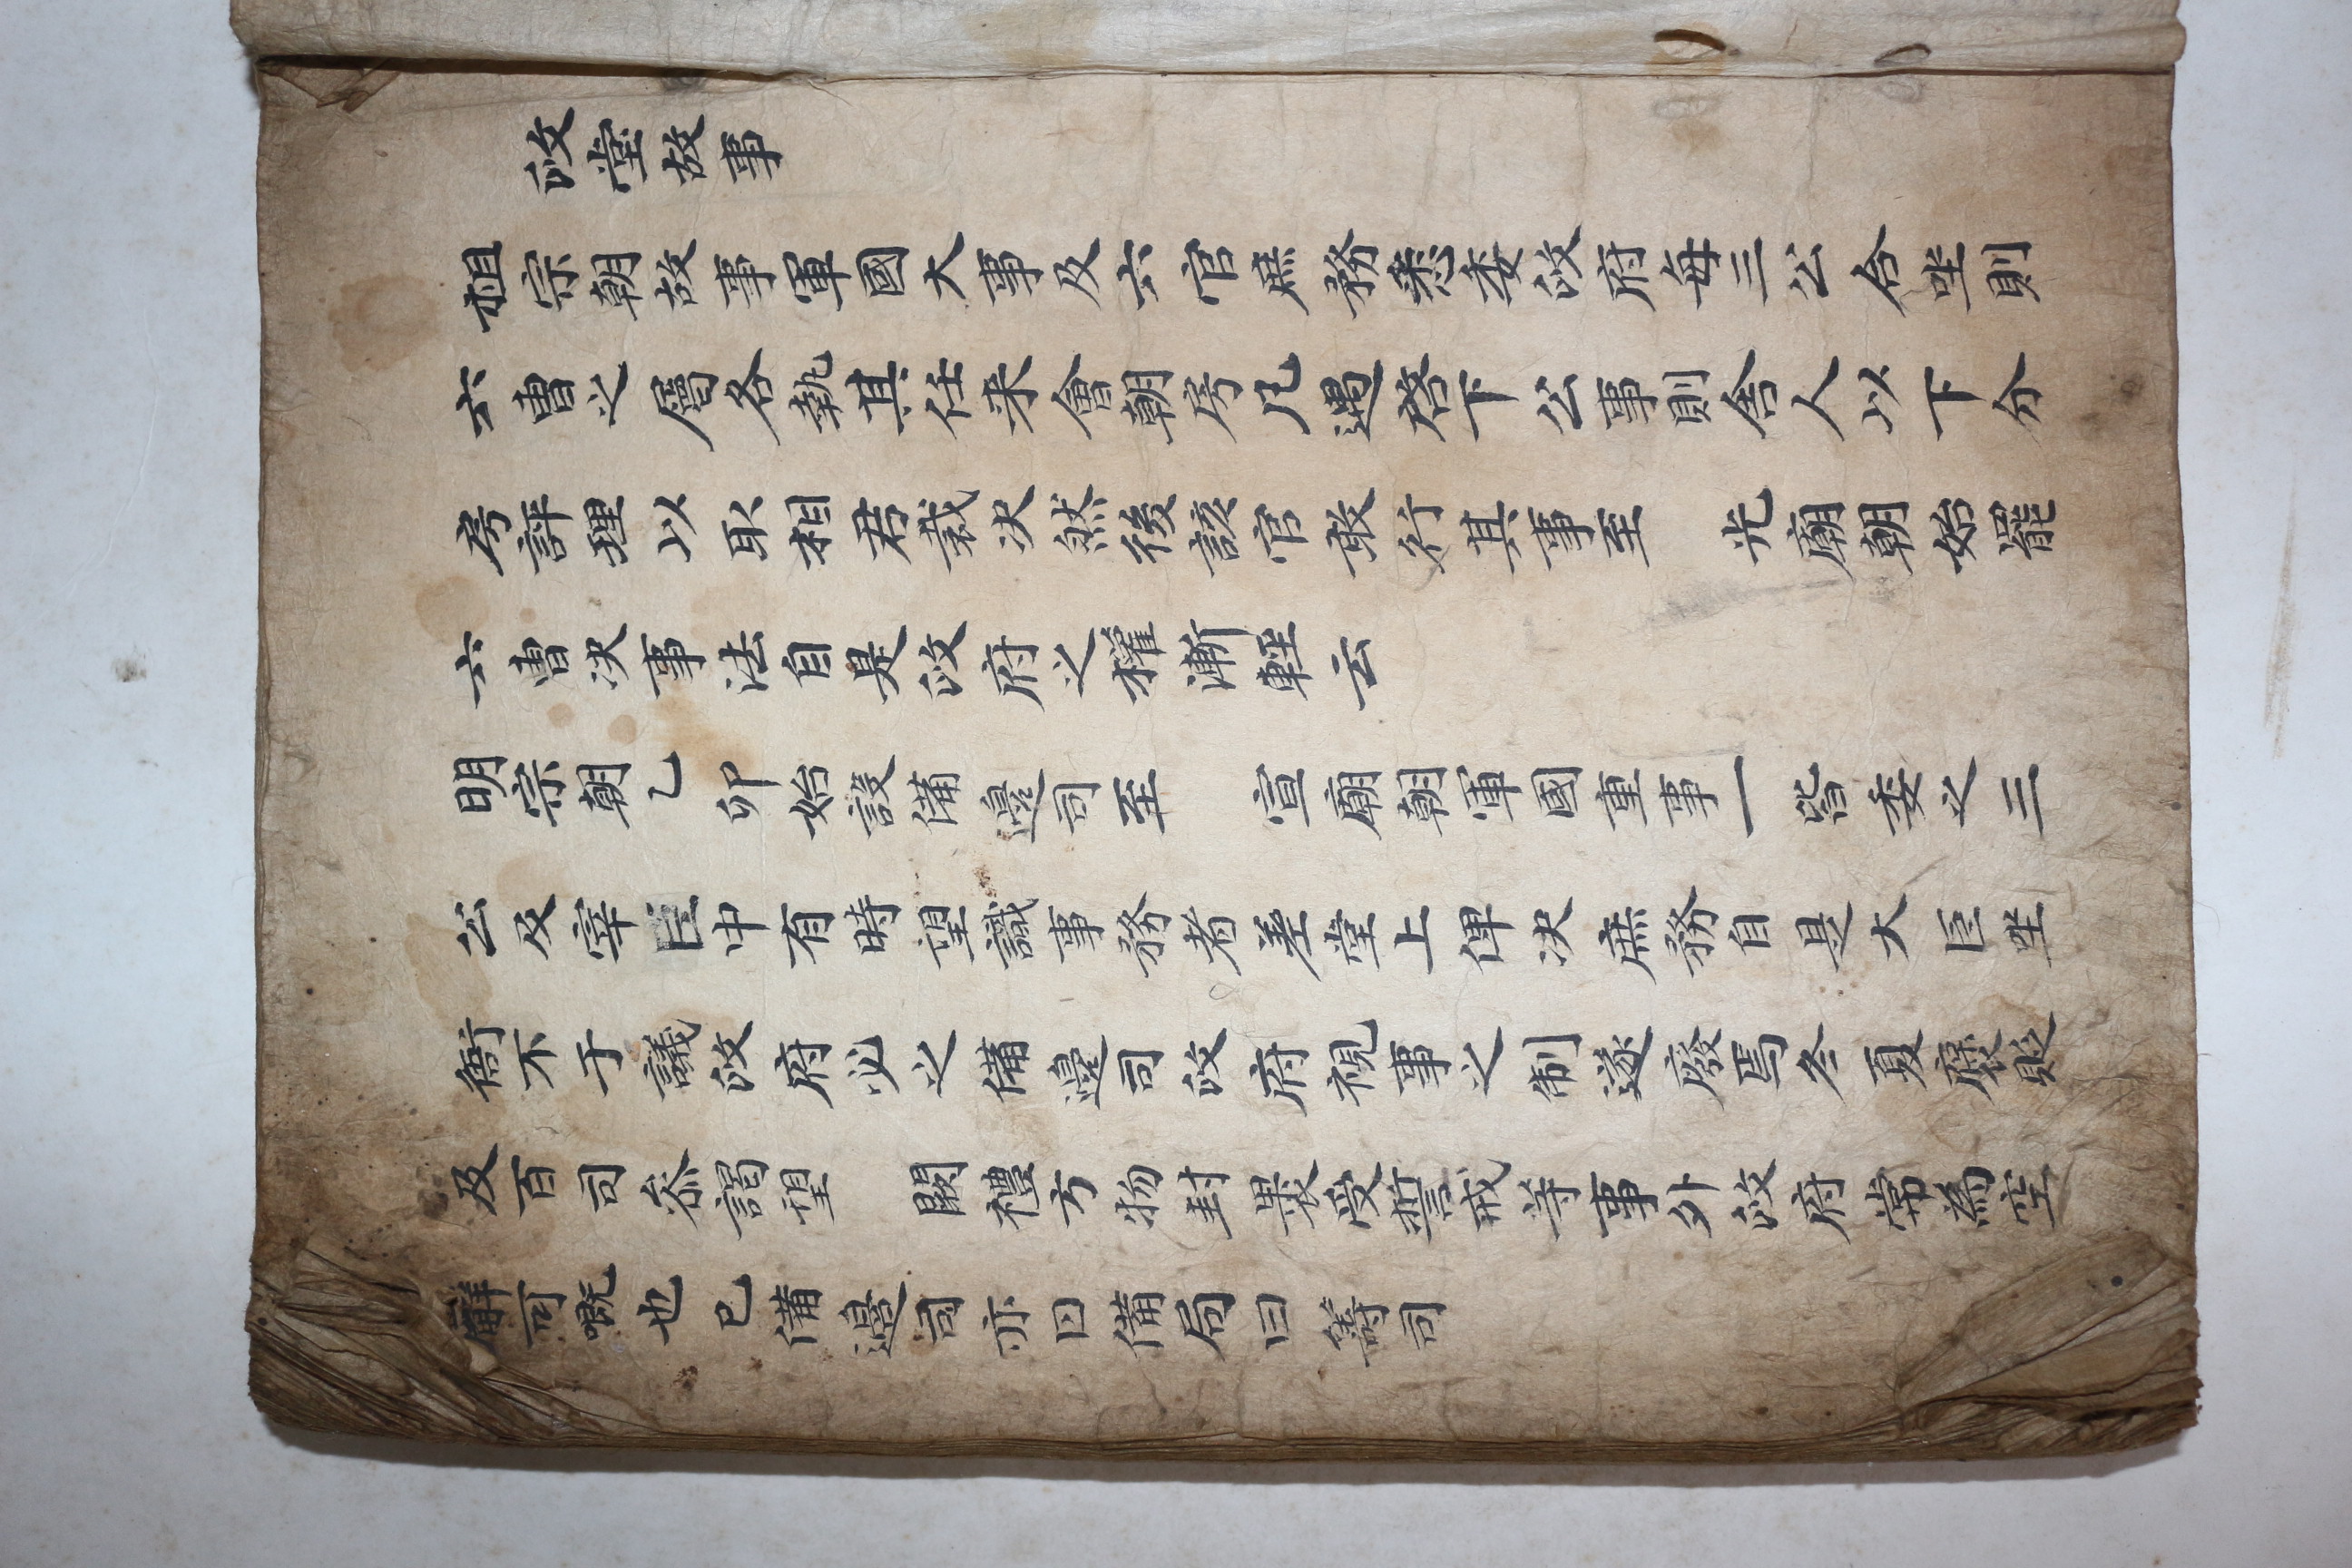 政堂故事
祖宗朝故事軍國大事及六官庶務悉委政府每三公合坐則
六曹之屬各執其任来會朝房凡遇啓下公事則舍人以下分
房評理以取相君裁决然後該官敢行其事至　光廟朝始罷
六曹决事法自是政府之權漸輕云
明宗朝乙卯始設備邊司至　宣廟朝軍國重事一皆委之三
公及宰臣中有時望識事務者差堂上俾决庶務自是大臣坐
衙不于議政府必之備邊司政府視事之制遂廢焉冬夏褒貶
及百司叅謁望　闕禮方物封裹受誓戒等事外政府常為空
廨可嘅也已備邊司亦曰備局曰籌司